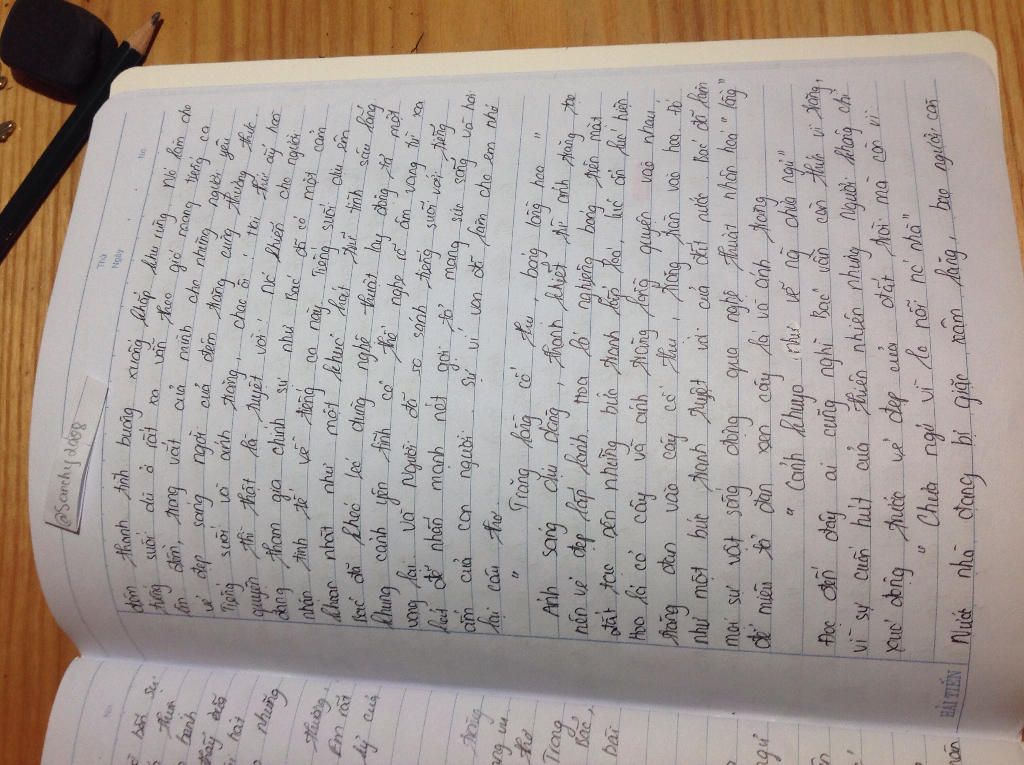 @Sanchy2008
Thứ
Ngày
No.
đêm thanh tĩnh buông xuống khắp khu rừng. Nó làm cho
tiếng suối dù ở rất xa vẫn theo gió mang tiếng ca
êm đềm, trong vắt của mình cho những người yêu
vẻ đẹp sáng ngời của đêm trăng cùng thưởng thức.
Tiếng suối và ánh trăng, chao ôi! rồi thứ ấy hòa
quyện thì thật là tuyệt vời. Nó khiến cho người
đang tham gia chính sự như Bác đã có một cảm
nhận tinh tế về tiếng ca này. Tiếng suối dịu êm
khoan nhặt như một khúc hát trữ tình sâu lắng
Bác đã khéo léo dùng nghệ thuật lấy động tả một
khung cảnh yên tĩnh có thể nghe rõ âm vang từ xa
vọng lại. Và Người đã so sánh tiếng suối với tiếng
hát để nhấn mạnh nét gợi tả mang sức sống và hơi
ấm của con người. Sự ví von đã làm cho em nhớ
lại câu thơ
" Trăng lồng cổ thụ, bóng lồng hoa "
Ánh sáng dịu dàng, thanh khiết từ ánh trăng tạ
nên vẻ đẹp lấp lánh hoa lá nghiêng bóng trên mặt
đất tạc nên những bức tranh lấp loá, lúc ẩn lúc hiện
Hoa lá cỏ cây và ánh trăng lồng quyện vào nhau,
trăng đan vào cây cổ thụ, trăng hoà vào hoa tỏ
như một bức tranh tuyệt vời của đất nước. Bác đã làm
mọi sự vật sống động qua nghệ thuật nhân hoá " lồng "
để miêu tả đan xen cây lá và ánh trăng
" Cảnh khuya như vẽ ng chưa ngủ "
Đọc đến đây ai cũng nghĩ Bác vẫn còn thức vì trăng,
vì sự cuốn hút của thiên nhiên nhưng Người không chỉ
xúc động trước vẻ đẹp của đất trời mà còn vì:
" Chưa ngủ vì lo nỗi nc nhà "
Nước nhà đang bị giặc xâm lăng, bao người con
HẢI TIẾN